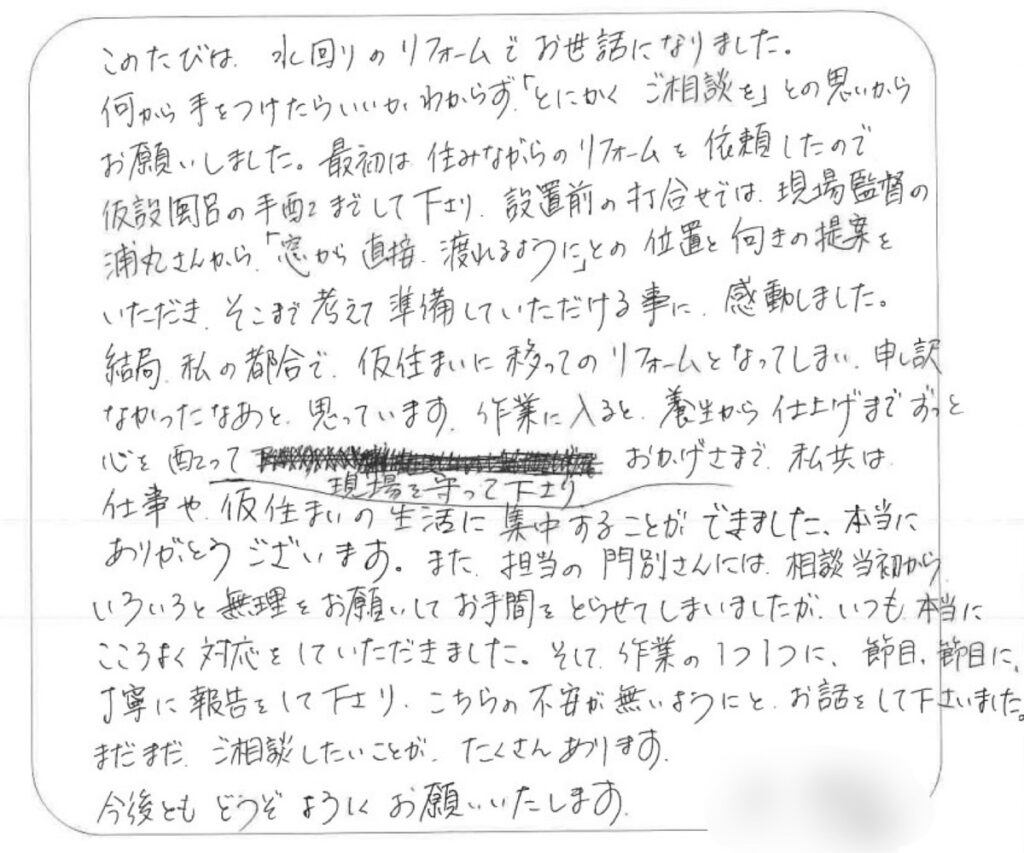 このたびは、水回りのリフォームでお世話になりました。
何から手をつけたらいいかわからず、「とにかくご相談を」との思いから
お願いしました。最初は住みながらのリフォームを依頼したので
仮設風呂の手配までして下さり、設置前の打合せでは、現場監督の
浦丸さんから、「窓から直接、渡れるように」との位置と向きの提案を
いただき、そこまで考えて準備していただける事に、感動しました。
結局、私の都合で、仮住まいに移ってのリフォームとなってしまい、申し訳
なかったなあと、思っています。作業に入ると、養生から仕上げまでずっと
心を配って おかげさまで、私共は、
現場を守って下さり
仕事や、仮住まいの生活に集中することができました、本当に
ありがとうございます。また、担当の門別さんには、相談当初から、
いろいろと無理をお願いしてお手間をとらせてしまいましたが、いつも本当に
こころよく対応をしていただきました。そして、作業の1つ1つに、節目、節目に、
丁寧に報告をして下さり、こちらの不安が無いようにと、お話をして下さいました。
まだまだ、ご相談したいことが、たくさんあります。
今後ともどうぞよろしくお願いいたします。